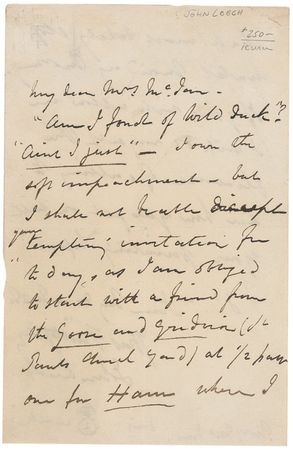 JOHN LEECH
$250-
My dear Mrs McIan -
"Am I fond of Wild duck"?
"Aint I just" - I own the
soft impeachment - but
I shall not be able
your
tempting invitation for
to day, as I am obliged
to start with a friend from
the Goose and Gridiron (St
Pauls Church Yard) at 1/2 past
one for Ham where I